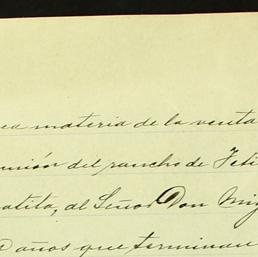 ea materia de la venta
unión del rancho de Feti
atita, al Señor Don Mig
años que terminan